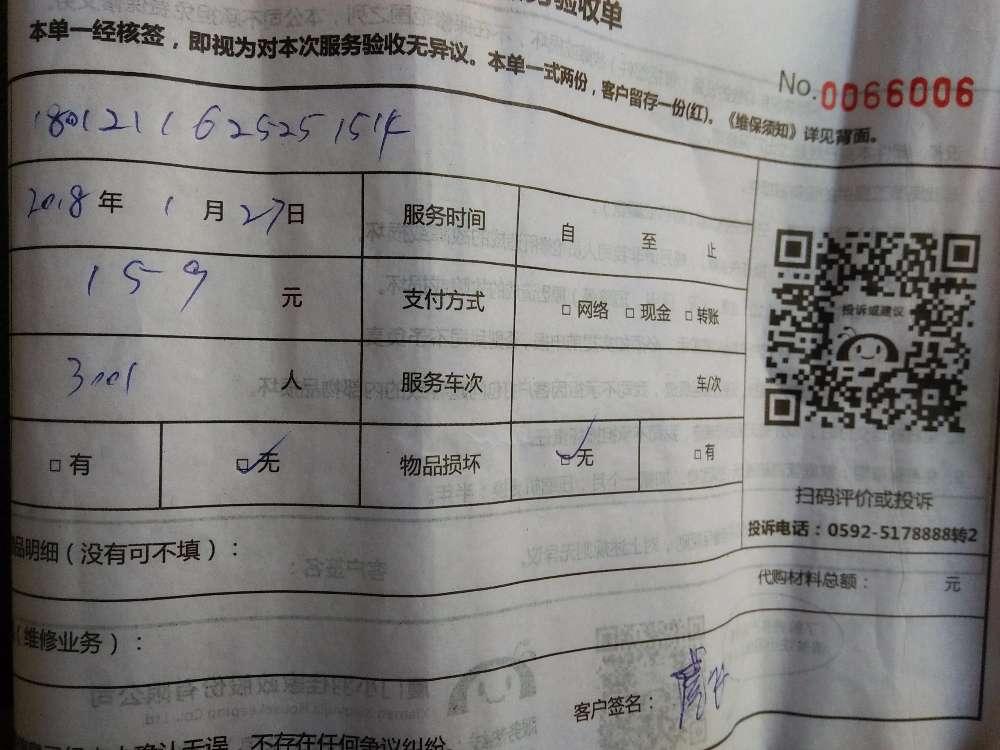 服务验收单
本单一经核签，即视为对本次服务验收无异议。本单一式两份，客户留存一份(红)。《维保须知》详见背面。
No.0066006
2018年 1月27日 服务时间 自 至 止
159 元 支付方式 □ 网络 □ 现金 □ 转账
人 服务车次 车/次
□ 有 ☑无 物品损坏 ☑无 □有
投诉或建议
扫码评价或投诉
投诉电话：0592-5178888转2
品明细（没有可不填）：
代购材料总额： 元
（维修业务）：
客户签名：
确认无误，不存在任何争议纠纷。